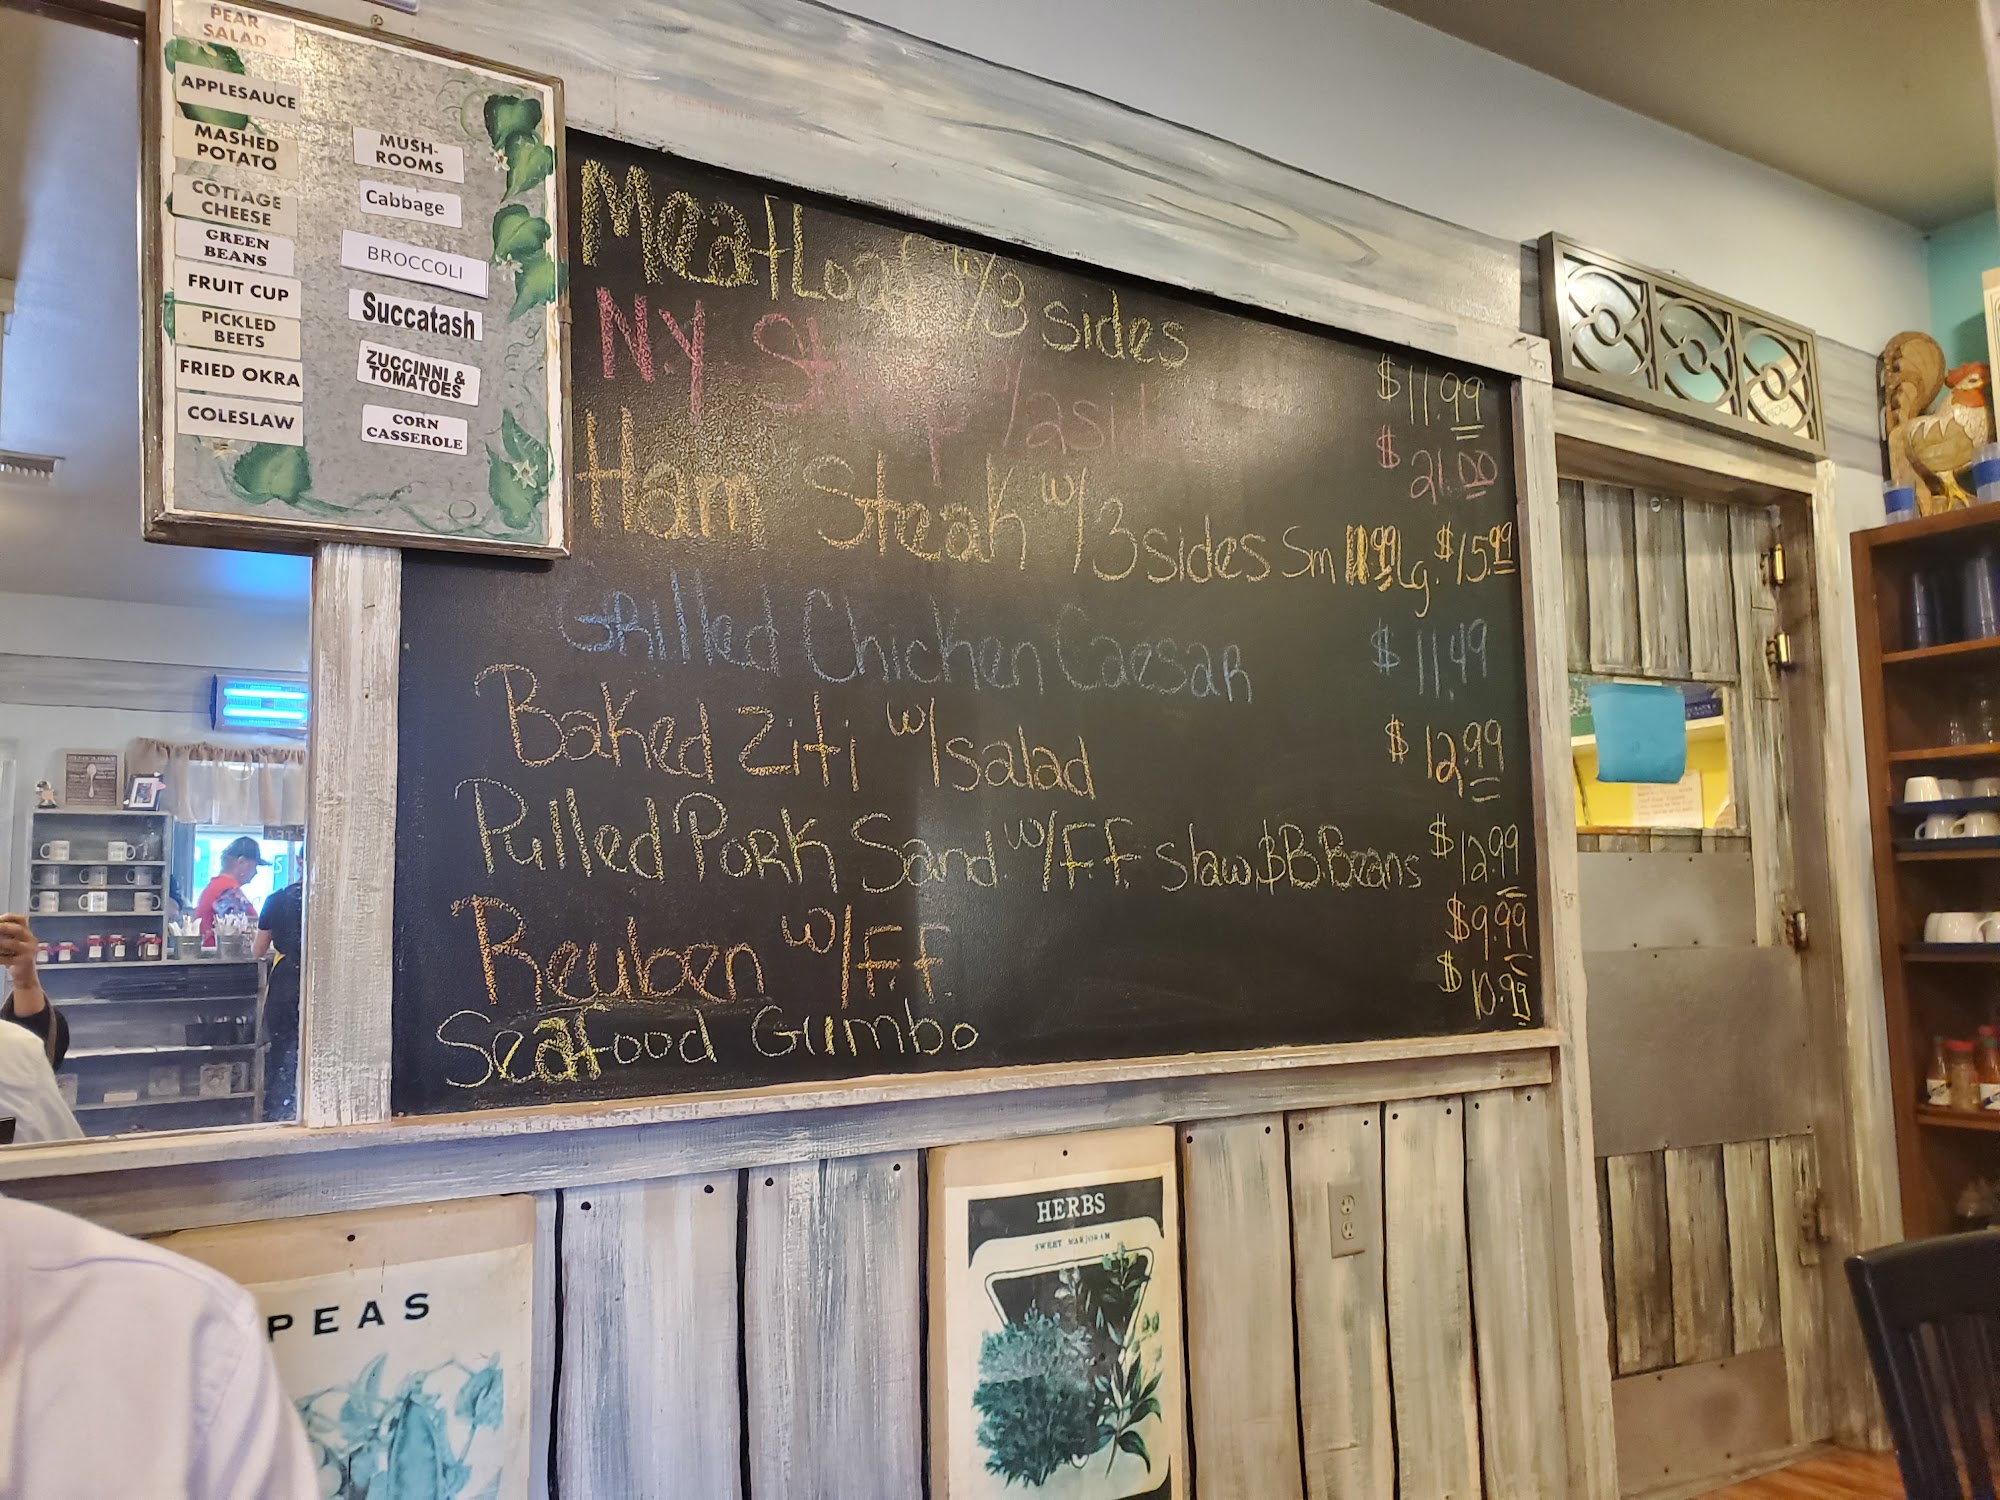 PEAR
SALAD
APPLESAUCE
MASHED
POTATO
COTTAGE
CHEESE
GREEN
BEANS
FRUIT CUP
PICKLED
BEETS
FRIED OKRA
COLESLAW
MUSH-
ROOMS
Cabbage
BROCCOLI
Succatash
ZUCCINNI &
TOMATOES
CORN
CASSEROLE
MeatLoaf w/3 sides $11.99
N.Y Strip w/2 sides $21.00
Ham Steak w/3 sides Sm 11.99 Lg. $15.99
Grilled Chicken Caesar $11.49
Baked Ziti w/salad $12.99
Pulled Pork Sand. w/F.F. slaw, $ B.Beans $12.99
Reuben w/F.F $9.99
Seafood Gumbo $10.99
PEAS
HERBS
SWEET MARJORAM